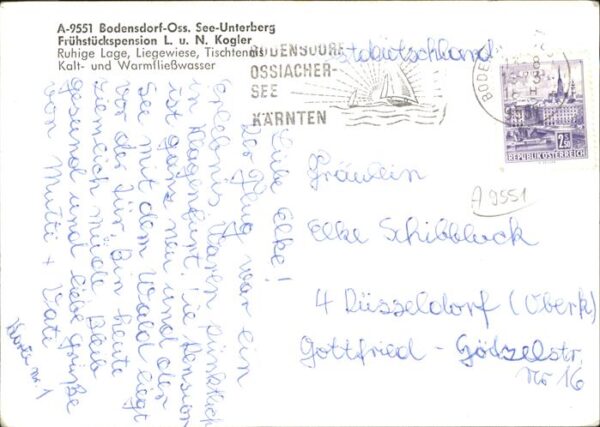 A-9551 Bodensdorf-Oss. See-Unterberg
Frühstückspension L. u. N. Kogler
Ruhige Lage, Liegewiese, Tischtennis
Kalt- und Warmfließwasser
BODENSDORF
OSSIACHER-
SEE
KÄRNTEN
REPUBLIK ÖSTERREICH
2.50
Liebe Elke!
Der Flug war ein
Erlebnis, waren pünktlich
in Klagenfurt. Die Pension
ist ganz neu und der
See mit dem Wald liegt
vor der Tür. Bin heute
ziemlich müde. Bleib
gesund und liebe Grüße
von Mutti + Vati
Karte nr. 1
Westdeutschland
Fräulein
Elke
A 9551
4 Düsseldorf (Oberk)
Gottfried-
Nr 16